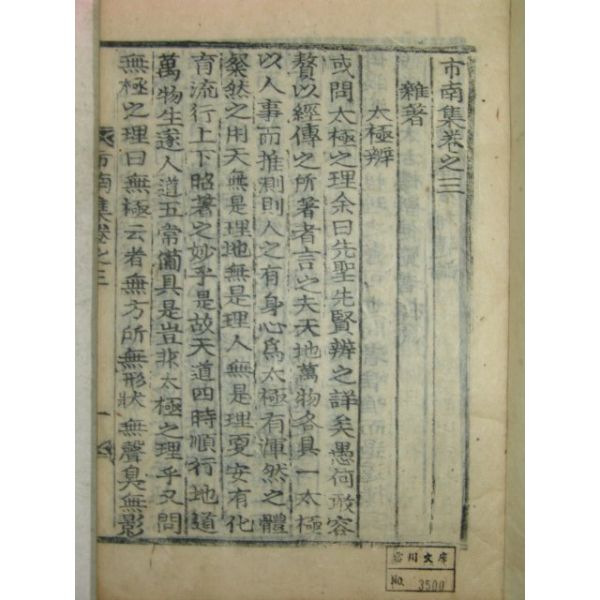 市南集卷之三
雜著
太極辨
或問太極之理余曰先聖先賢辨之詳矣愚何敢容
贅以經傳之所著者言之夫天地萬物各具一太極
以人事而推測則人之有身心爲太極有渾然之體
粲然之用天無是理地無是理人無是理更安有化
育流行上下昭著之妙乎是故天道四時順行地道
萬物生遂人道五常備具是豈非太極之理乎又問
無極之理曰無極云者無方所無形狀無聲臭無影
市南集卷之三
一
文庫
No. 3500